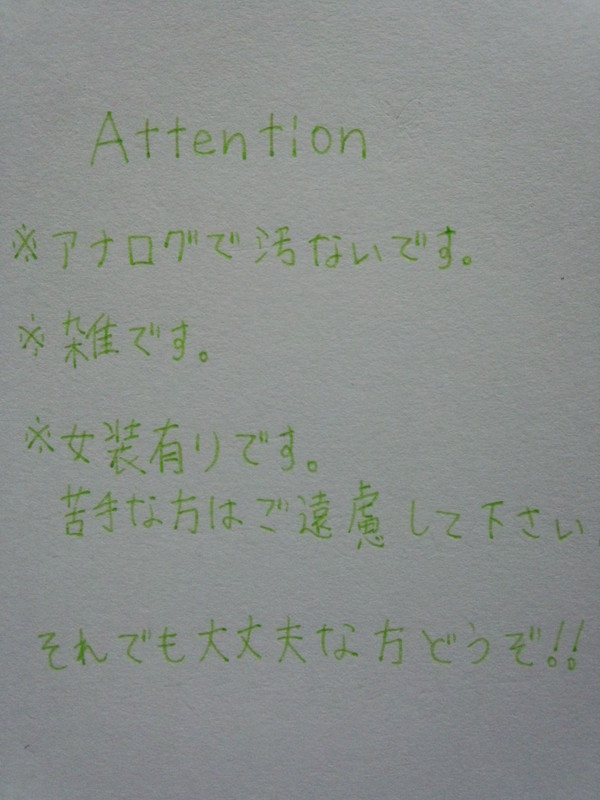 Attention
※アナログで汚ないです。
※雑です。
※女装有りです。
苦手な方はご遠慮して下さい
それでも大丈夫な方どうぞ!!